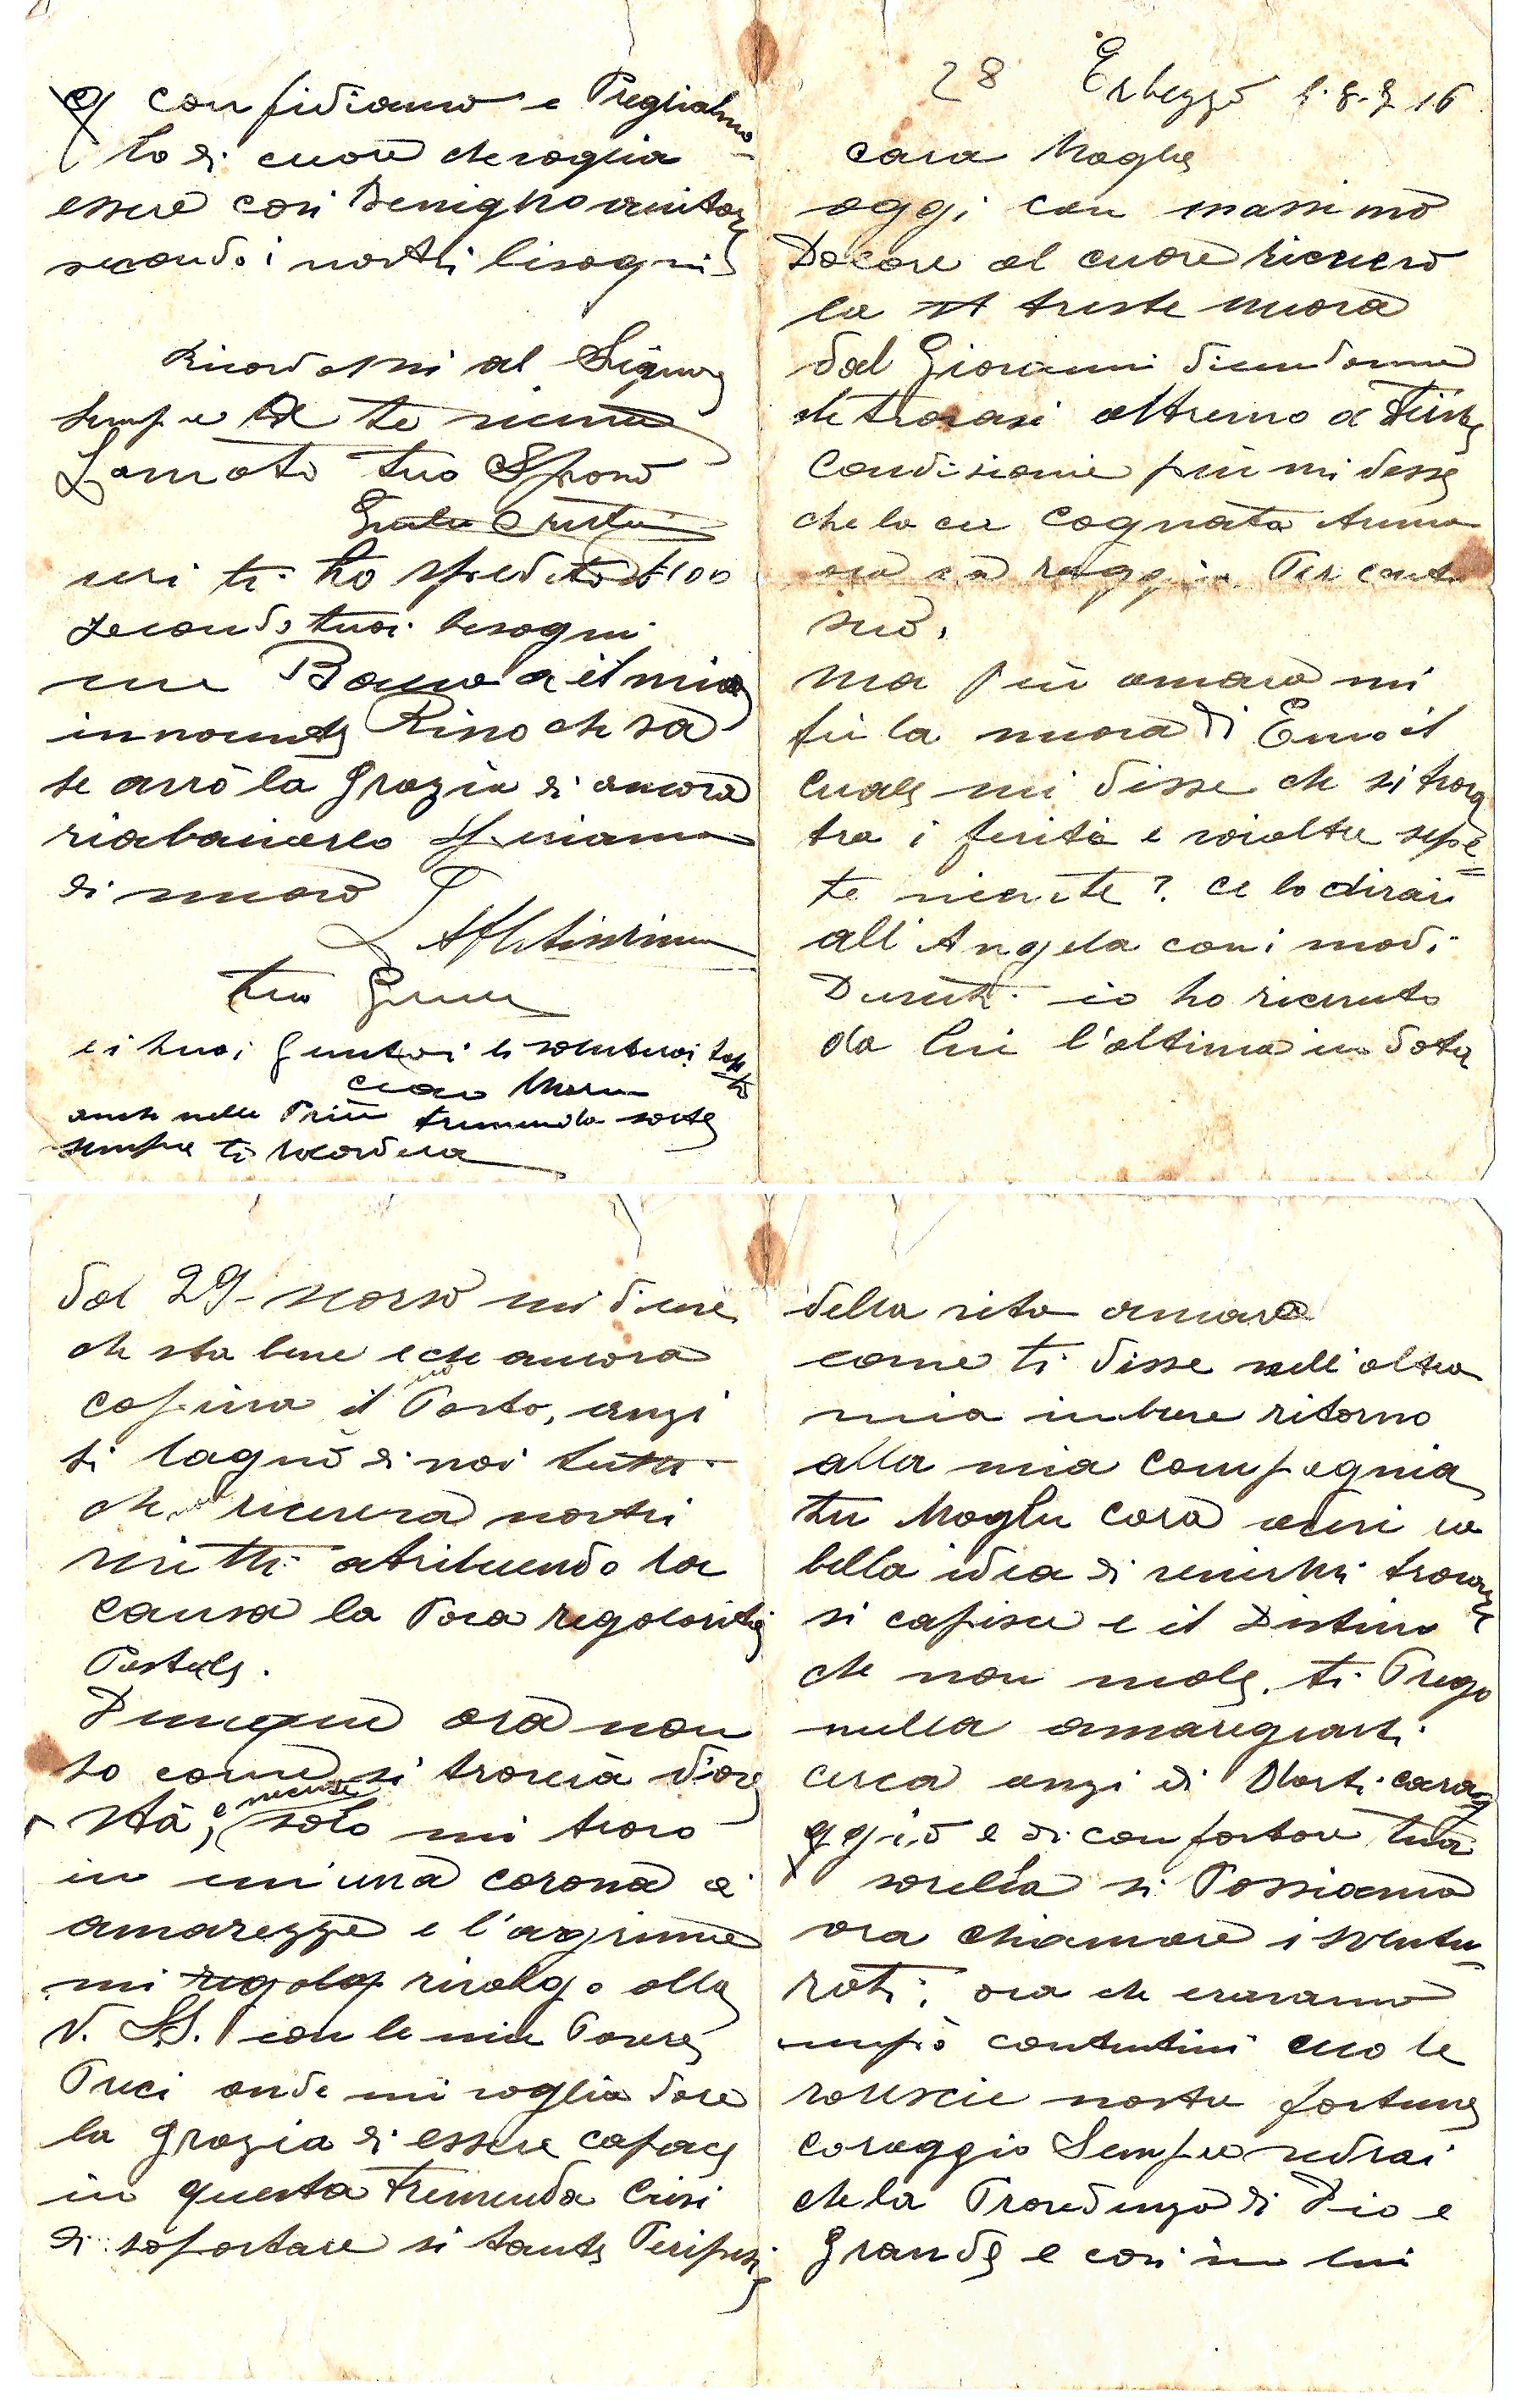 28 Erbezzo 16
cara Moglie
oggi con massimo
Dolore al cuore ricevero
la triste nuova
dal Giovanni dicendome
che trovasi altremo a triste
condisione più mi desse
che la cognata Anna
Per conto
suo.
Ma più amara mi
fu la nuova di Emo il
cuale mi disse che si trova
tra i feriti e voialtre sepe=
te niente? ce lo dirai
all'Angela con i modi
Duvuti io ho ricevuto
da lui l'ultima in data
dal 29- scorso mi dice
che sta bene e che ancora
copriva il suo Posto, anzi
si lagnò di noi tutti
che non riceveva nostri
scritti atribuendo la
causa la Poca regolarità
Postale.
Dunque ora non
so come si troverà d'ore
stà, e niente solo mi trovo
in una corona di
amarezze e l'agrime
mi rivolgo alla
V. SS. con le mie Povere
Preci onde mi voglia dare
la grazia di essere capace
in questa tremenda Crisi
di soportare si tante Peripesie
della vita amara
come ti disse nell'altra
mia in breve ritorno
alla mia compagnia
tu Moglie cara avevi la
bella idea di venirmi trovare
si capisce e il Distino
che non vole. ti Prego
nulla amaregiarti
cerca anzi di Darti cora
ggio e di confortare tua
sorella si Possiamo
ora chiamare i sventu-
rati, ora che eravamo
un pò contentini ecco le
rovescie nostre fortune
coraggio Sempre vedrai
che la Provedenza di Dio e
grande e così in lui
confidiamo e Preghiamo-
lo di cuore che voglia
essere così Benigno aiutare
secondo i nostri bisogni
Ricordami al Signore
sempre te
L'amato tuo Sposo
ieri ti ho spedito £100
secondo tuoi besogni
un Bacio a il mio
innocente Rino chi sa
se avrò la grazia di ancora
riabaciarlo speriamo
di nuovo
Aff.tissimo
tuo
e i tuoi Genitori li saluterai
ciao
anche nelle Più tremenda sorte
sempre ti recorderà